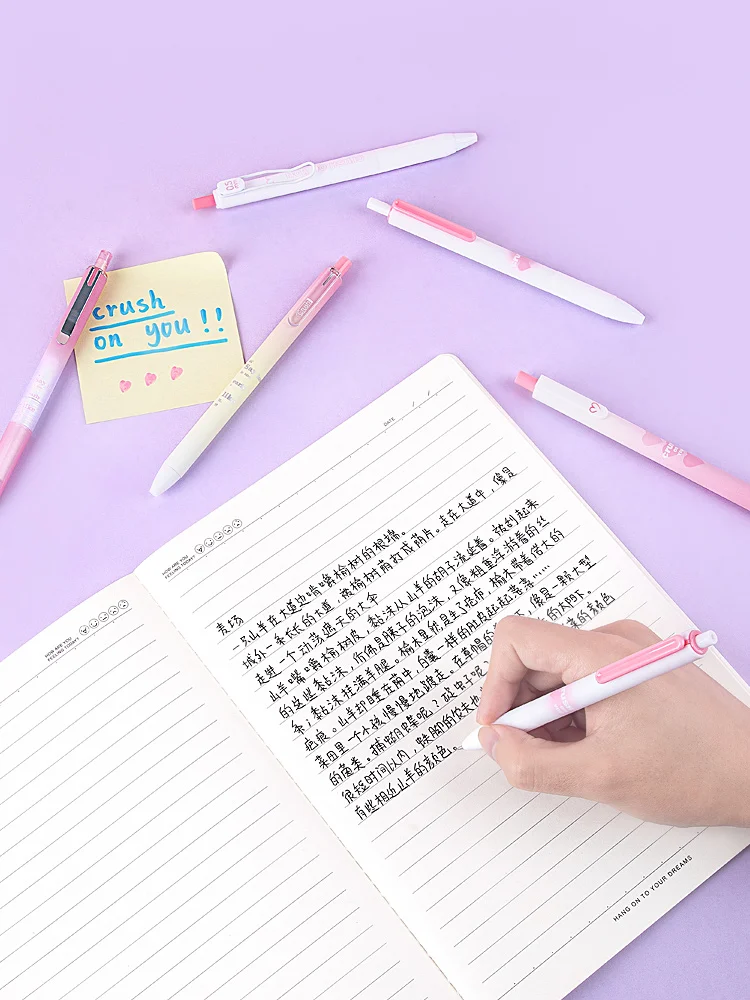 05
crush
on you!!
DATE / /
HOW ARE YOU
FEELING TODAY?
HOW ARE YOU
FEELING TODAY?
麦场
一只山羊在大道边啃嚼榆树的根端。
城外一条长长的大道,被榆树荫打成荫片。走在大道中,像是
走进一个动荡遮天的大伞
山羊嘴嚼榆树皮,黏沫从山羊的胡子流延着。被刮起来
的这些黏沫,而像是胰子的泡沫,又像粗重浮游着的丝
条;黏沫挂满羊腿。榆木显然是生了疮疖,榆木带着偌大的
疤痕。山羊却睡在荫中,白囊一样的肚皮起起落落……
菜田里一个小孩慢慢地踱走。在草帽的
的菌类。捕蝴蝶呢?捉虫子呢?
很短时间以内,跌脚的农夫也
有些相近山羊的颜色。
HANG ON TO YOUR DREAMS